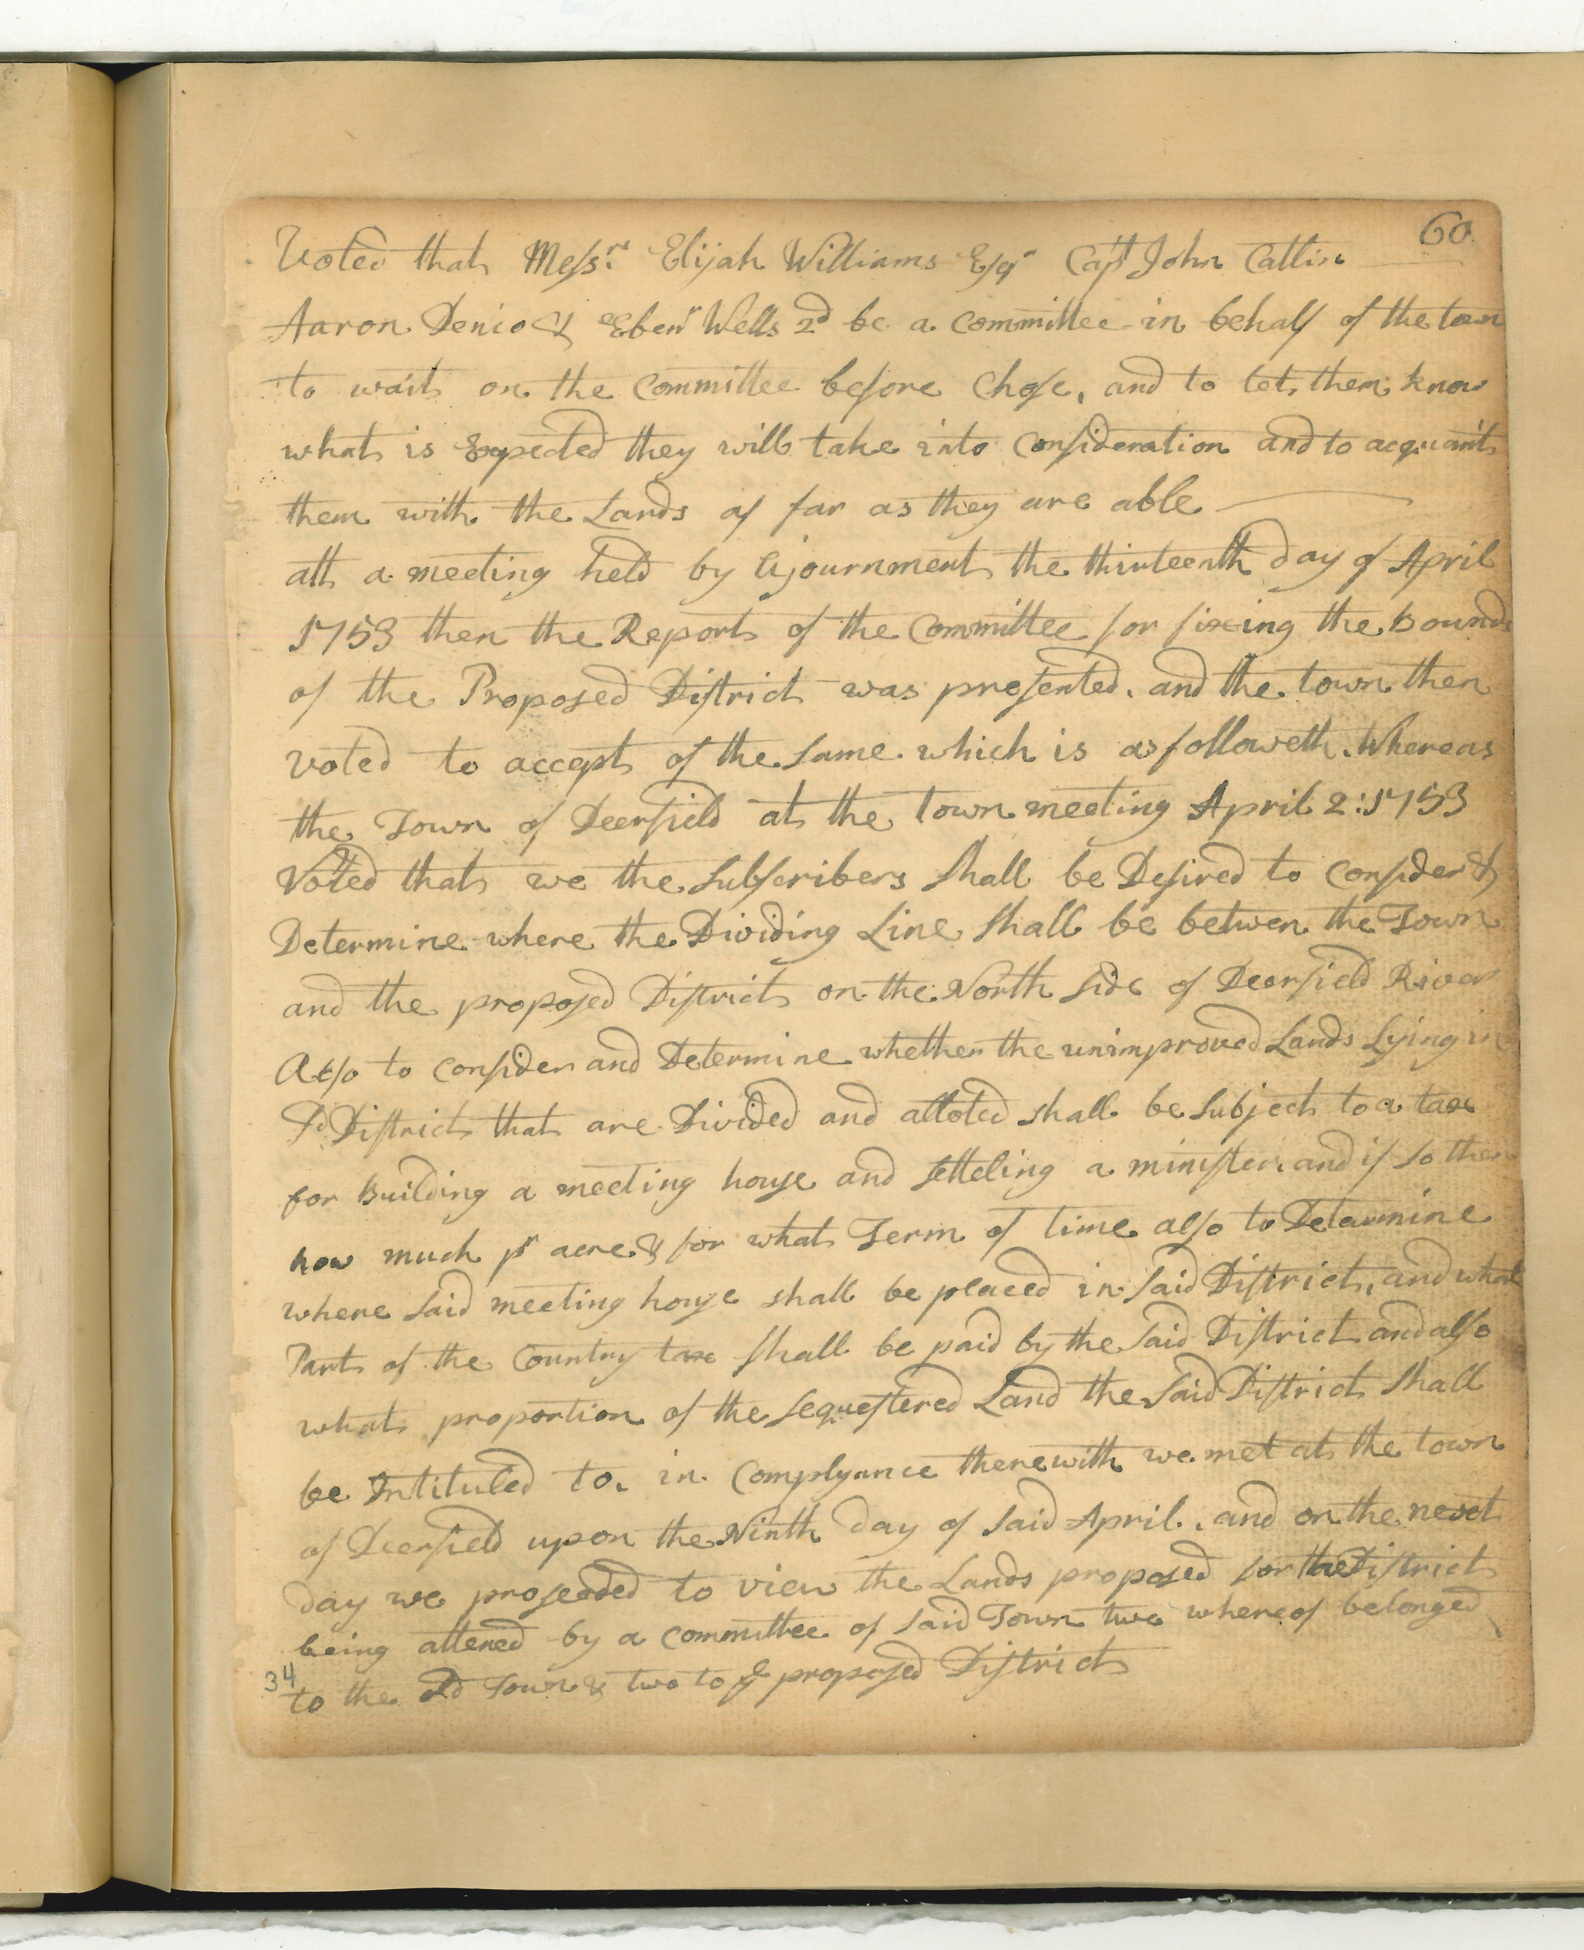 60
Voted that Messrs. Elijah Williams Esqr Capt John Catlin
Aaron Denio & Ebenr Wells 2d be a Committee in behalf of the town
to wait on the Committee before Chose, and to let them know
what is Expected they will take into Consideration and to acquaint
them with the Lands as far as they are able
att a meeting held by Ajournment the thirteenth day of April
1753 then the Report of the Committee for fixeing the Bounds
of the Proposed District was presented. and the town then
voted to accept of the Same which is as followeth. Whereas
the Town of Deerfield at the town meeting April 2:1753
Voted that we the Subscribers Shall be Desired to Consider &
Determine where the Dividing Line Shall be betwen the Town
and the proposed District on the North Side of Deerfield River
Also to Consider and Determine whether the unimproved Lands Lying in
Sd District that are Divided and alloted shall be Subject to a tax
for Building a meeting house and Setteling a minister. and if So then
how much pr acre & for what Term of time also to Determine
where Said meeting house shall be placed in Said District, and what
Part of the Country tax Shall be paid by the Said District and also
what proportion of the Sequestered Land the Said District Shall
be Intituled to. in Complyance therewith we met at the town
of Deerfield upon the Ninth day of Said April. and on the next
day we proseeded to view the Lands proposed for the District
being attened by a Committee of Said Town two whereof belonged
to the old Town & two to ye proposed District
34